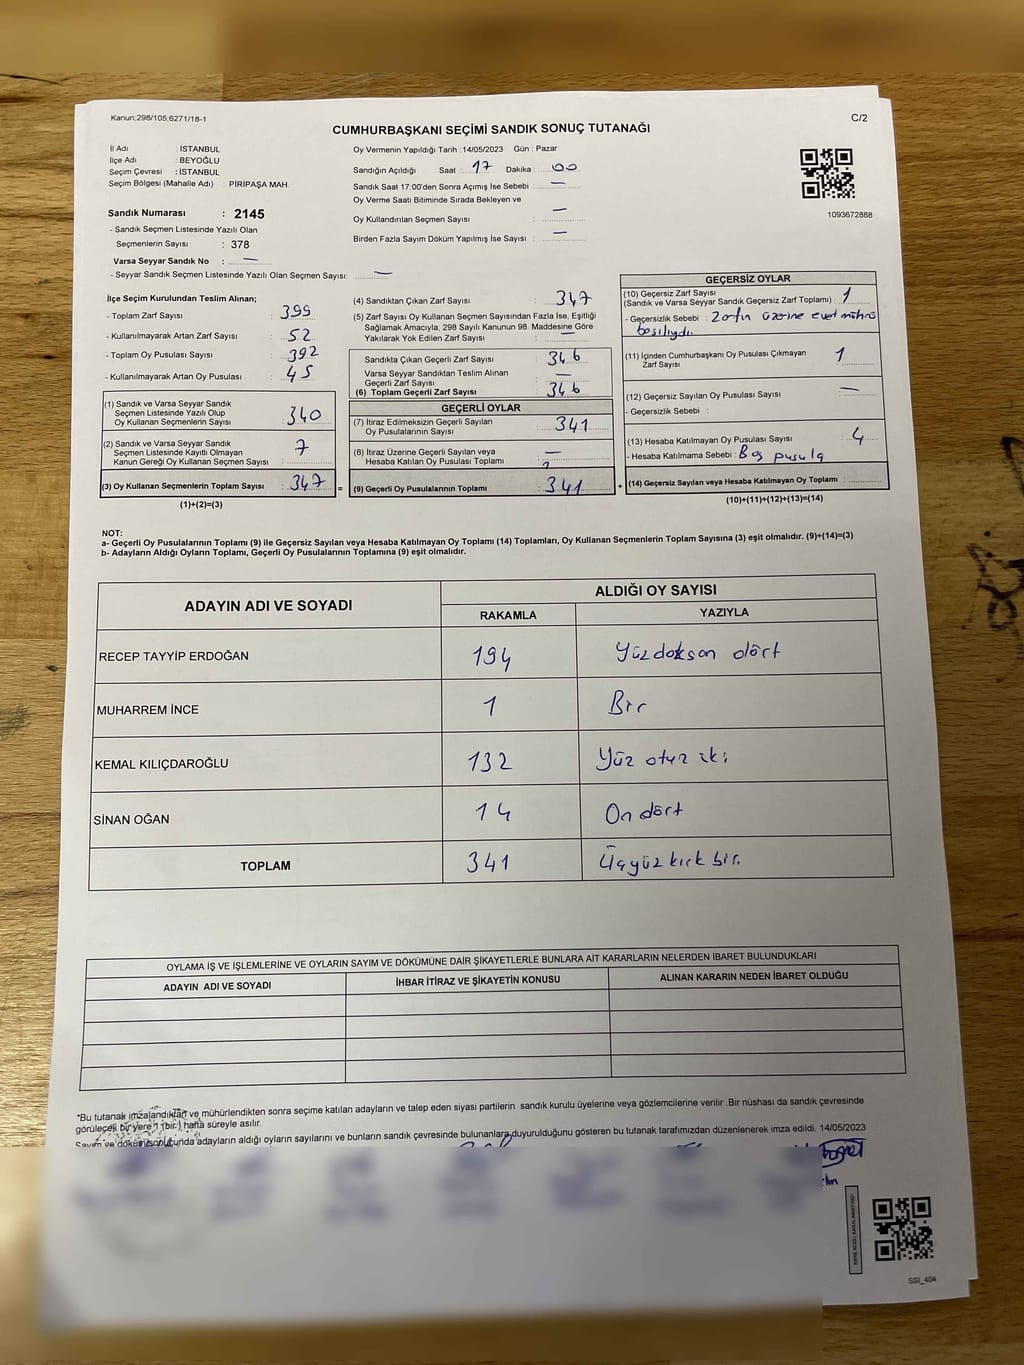 Kanun:298/105;6271/18-1
C/2
CUMHURBAŞKANI SEÇİMİ SANDIK SONUÇ TUTANAĞI
İl Adı : İSTANBUL
İlçe Adı : BEYOĞLU
Seçim Çevresi : İSTANBUL
Seçim Bölgesi (Mahalle Adı) : PİRİPAŞA MAH.
Sandık Numarası : 2145
- Sandık Seçmen Listesinde Yazılı Olan
Seçmenlerin Sayısı : 378
Varsa Seyyar Sandık No : —
- Seyyar Sandık Seçmen Listesinde Yazılı Olan Seçmen Sayısı: —
Oy Vermenin Yapıldığı Tarih : 14/05/2023 Gün : Pazar
Sandığın Açıldığı Saat : 17 Dakika : 00
Sandık Saat 17.00'den Sonra Açımış İse Sebebi : —
Oy Verme Saati Bitiminde Sırada Bekleyen ve
Oy Kullandırılan Seçmen Sayısı : —
Birden Fazla Sayım Döküm Yapılmış İse Sayısı : —
1093672888
İlçe Seçim Kurulundan Teslim Alınan;
- Toplam Zarf Sayısı : 399
- Kullanılmayarak Artan Zarf Sayısı : 52
- Toplam Oy Pusulası Sayısı : 392
- Kullanılmayarak Artan Oy Pusulası : 45
(1) Sandık ve Varsa Seyyar Sandık
Seçmen Listesinde Yazılı Olup
Oy Kullanan Seçmenlerin Sayısı : 340
(2) Sandık ve Varsa Seyyar Sandık
Seçmen Listesinde Kayıtlı Olmayan
Kanun Gereği Oy Kullanan Seçmen Sayısı : 7
(3) Oy Kullanan Seçmenlerin Toplam Sayısı : 347 =
(1)+(2)=(3)
(4) Sandıktan Çıkan Zarf Sayısı : 347
(5) Zarf Sayısı Oy Kullanan Seçmen Sayısından Fazla İse, Eşitliği
Sağlamak Amacıyla, 298 Sayılı Kanunun 98. Maddesine Göre
Yakılarak Yok Edilen Zarf Sayısı : —
Sandıkta Çıkan Geçerli Zarf Sayısı : 346
Varsa Seyyar Sandıktan Teslim Alınan
Geçerli Zarf Sayısı : —
(6) Toplam Geçerli Zarf Sayısı : 346
GEÇERLİ OYLAR
(7) İtiraz Edilmeksizin Geçerli Sayılan
Oy Pusulalarının Sayısı : 341
(8) İtiraz Üzerine Geçerli Sayılan veya
Hesaba Katılan Oy Pusulası Toplamı : —
(9) Geçerli Oy Pusulalarının Toplamı : 341 +
GEÇERSİZ OYLAR
(10) Geçersiz Zarf Sayısı
(Sandık ve Varsa Seyyar Sandık Geçersiz Zarf Toplamı) : 1
- Geçersizlik Sebebi : Zarfın üzerine evet mührü
basılıydı.
(11) İçinden Cumhurbaşkanı Oy Pusulası Çıkmayan
Zarf Sayısı : 1
(12) Geçersiz Sayılan Oy Pusulası Sayısı : —
- Geçersizlik Sebebi :
(13) Hesaba Katılmayan Oy Pusulası Sayısı : 4
- Hesaba Katılmama Sebebi : Boş pusula
(14) Geçersiz Sayılan veya Hesaba Katılmayan Oy Toplamı :
(10)+(11)+(12)+(13)=(14)
NOT:
a- Geçerli Oy Pusulalarının Toplamı (9) ile Geçersiz Sayılan veya Hesaba Katılmayan Oy Toplamı (14) Toplamları, Oy Kullanan Seçmenlerin Toplam Sayısına (3) eşit olmalıdır. (9)+(14)=(3)
b- Adayların Aldığı Oyların Toplamı, Geçerli Oy Pusulalarının Toplamına (9) eşit olmalıdır.
ADAYIN ADI VE SOYADI
ALDIĞI OY SAYISI
RAKAMLA YAZIYLA
RECEP TAYYİP ERDOĞAN 194 Yüzdoksan dört
MUHARREM İNCE 1 Bir
KEMAL KILIÇDAROĞLU 132 Yüz otuz iki
SİNAN OĞAN 14 On dört
TOPLAM 341 Üçyüz kırk bir.
OYLAMA İŞ VE İŞLEMLERİNE VE OYLARIN SAYIM VE DÖKÜMÜNE DAİR ŞİKAYETLERLE BUNLARA AİT KARARLARIN NELERDEN İBARET BULUNDUKLARI
ADAYIN ADI VE SOYADI İHBAR İTİRAZ VE ŞİKAYETİN KONUSU ALINAN KARARIN NEDEN İBARET OLDUĞU
*Bu tutanak imzalandıktan ve mühürlendikten sonra seçime katılan adayların ve talep eden siyasi partilerin sandık kurulu üyelerine veya gözlemcilerine verilir .Bir nüshası da sandık çevresinde
görülecek bir yere 1 (bir) hafta süreyle asılır.
Sayım ve döküm sonucunda adayların aldığı oyların sayılarını ve bunların sandık çevresinde bulunanlara duyurulduğunu gösteren bu tutanak tarafımızdan düzenlenerek imza edildi. 14/05/2023
SSI_404